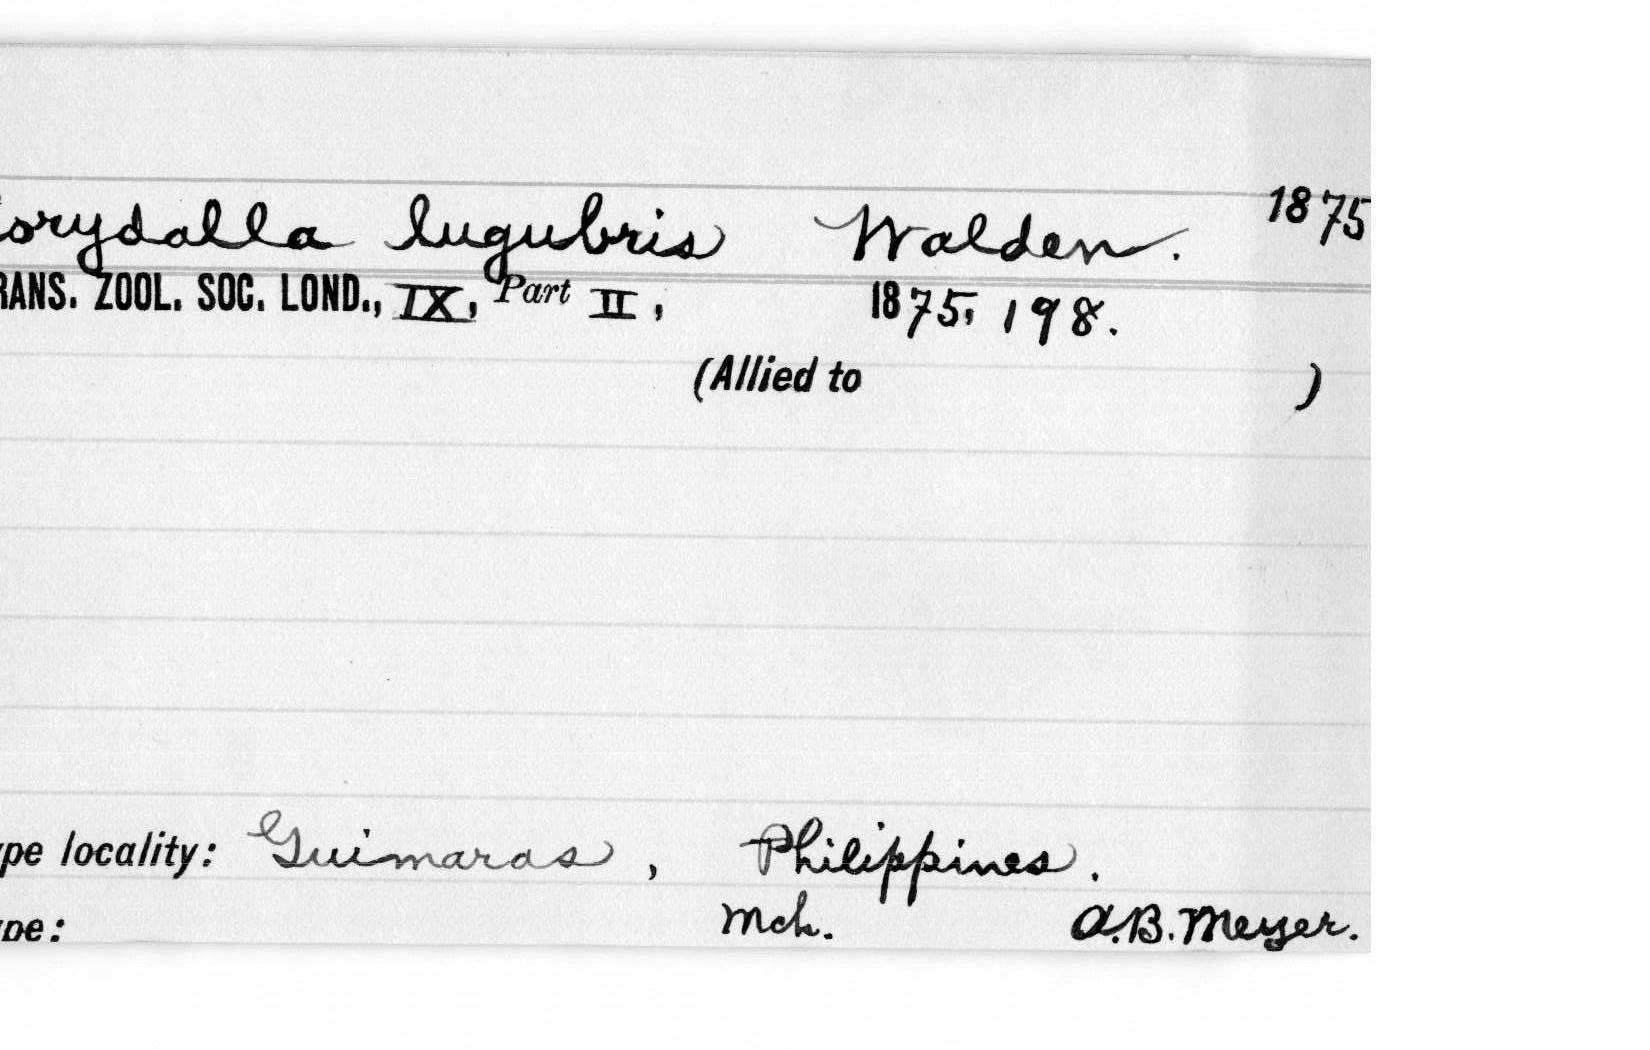 orydalla lugubris Walden. 1875
RANS. ZOOL. SOC. LOND., IX, Part II, 1875, 198.
(Allied to )
ype locality: Guimaras, Philippines.
pe: Mch. A.B. Meyer.